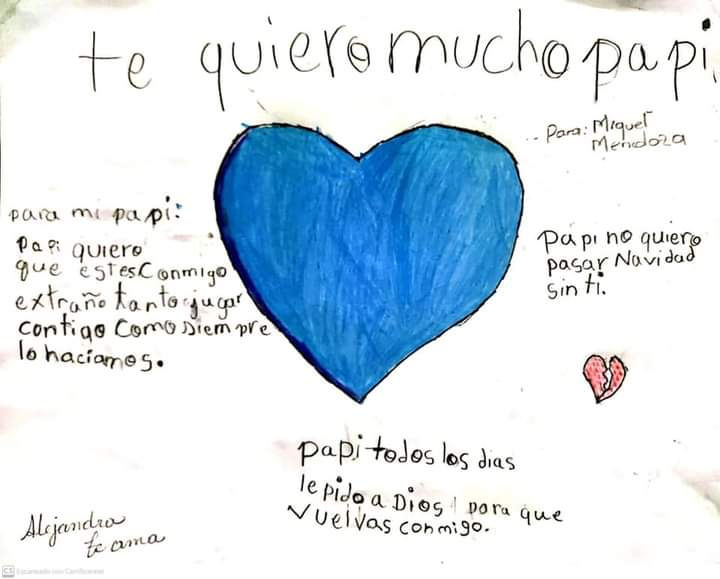 te quiero mucho papi
Para: Miguel
Mendoza
para mi papi:
Papi quiero
que estes conmigo
extraño tanto jugar
contigo como siempre
lo hacíamos.
Papi no quiero
pasar Navidad
sin ti.
papi todos los dias
le pido a Dios para que
vuelvas conmigo.
Alejandra
te ama
CS Escaneado con CamScanner